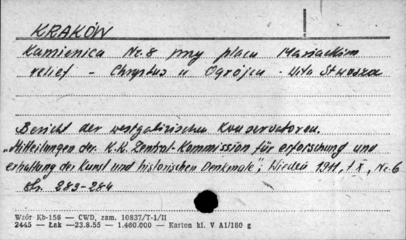 KRAKÓW
Kamienica Nr. 8 przy placu Mariackim
relief - Chrystus w Ogrójcu - Wita Stwosza
Bericht der westgalizischen Konservatoren.
"Mitteilungen der K.K. Zentral-Kommission für erforschung und
erhaltung der Kunst und historischen Denkmale", Wiedeń 1911, t X, Nr. 6
Str. 283-284
Wzór Kb-156 — CWD, zam. 10837/T-1/II
2445 — Łsk —23.8.55 — 1.460.000 — Karton kl. V A1/180 g